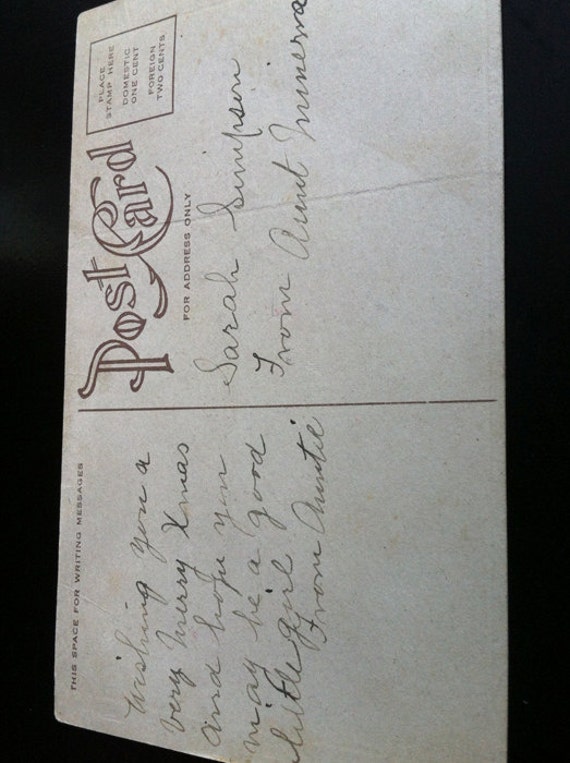 THIS SPACE FOR WRITING MESSAGES
Wishing you a
very Merry Xmas
and hope you
may be a good
little girl
From Auntie
Post Card
FOR ADDRESS ONLY
PLACE
STAMP HERE
DOMESTIC
ONE CENT
FOREIGN
TWO CENTS
Sarah Simpson
From Aunt Minerva